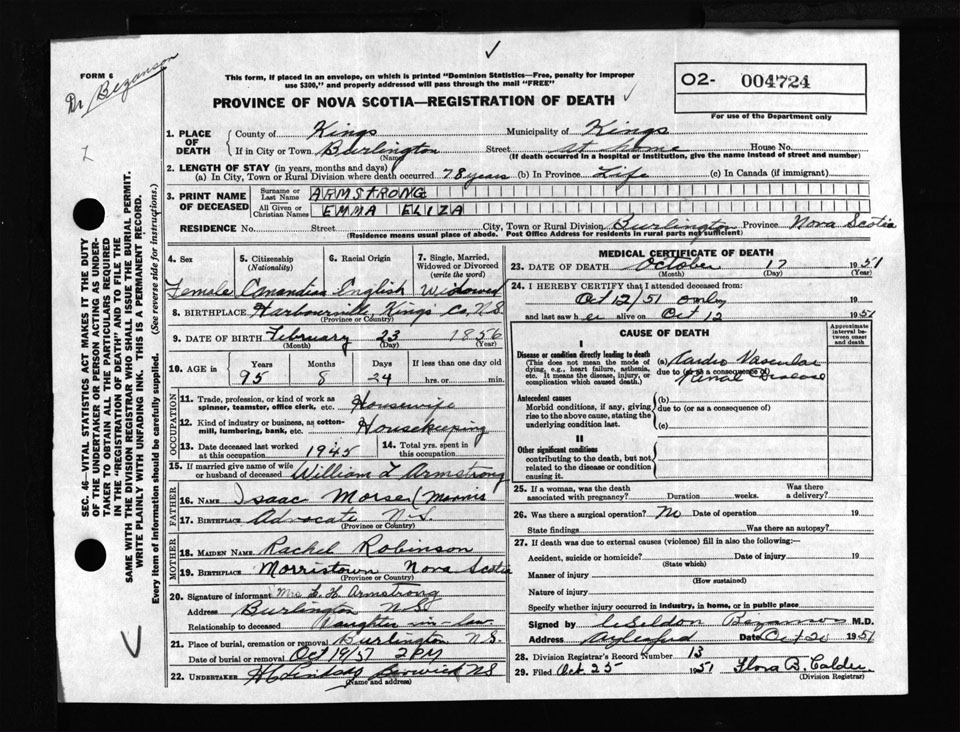 FORM 6
Dr Bezanson
This form, if placed in an envelope, on which is printed "Dominion Statistics—Free, penalty for improper
use $300," and properly addressed will pass through the mail "FREE"
PROVINCE OF NOVA SCOTIA—REGISTRATION OF DEATH
O2- 004724
For use of the Department only
SEC. 46—VITAL STATISTICS ACT MAKES IT THE DUTY
OF THE UNDERTAKER OR PERSON ACTING AS UNDER-
TAKER TO OBTAIN ALL THE PARTICULARS REQUIRED
IN THE "REGISTRATION OF DEATH" AND TO FILE THE
SAME WITH THE DIVISION REGISTRAR WHO SHALL ISSUE THE BURIAL PERMIT.
WRITE PLAINLY WITH UNFADING INK. THIS IS A PERMANENT RECORD.
Every item of Information should be carefully supplied. (See reverse side for instructions.)
1. PLACE OF DEATH County of Kings Municipality of Kings
If in City or Town Burlington Street at home House No.
(Name) (If death occurred in a hospital or institution, give the name instead of street and number)
2. LENGTH OF STAY (in years, months and days)
(a) In City, Town or Rural Division where death occurred 78 years (b) In Province Life (c) In Canada (if immigrant)
3. PRINT NAME OF DECEASED Surname or Last Name ARMSTRONG
All Given or Christian Names EMMA ELIZA
RESIDENCE No. Street City, Town or Rural Division Burlington Province Nova Scotia
(Residence means usual place of abode. Post Office Address for residents in rural parts not sufficient)
4. Sex 5. Citizenship (Nationality) 6. Racial Origin 7. Single, Married, Widowed or Divorced (write the word)
Female Canandian English Widowed
8. BIRTHPLACE Harbourville, Kings Co, N.S.
(Province or Country)
9. DATE OF BIRTH February 23 1856
(Month) (Day) (Year)
10. AGE in Years Months Days If less than one day old
95 8 24 hrs. or min.
OCCUPATION
11. Trade, profession, or kind of work as spinner, teamster, office clerk, etc. Housewife
12. Kind of industry or business, as cotton-mill, lumbering, bank, etc. Housekeeping
13. Date deceased last worked at this occupation 1945 14. Total yrs. spent in this occupation
15. If married give name of wife or husband of deceased William L Armstrong
FATHER
16. Name Isaac Morse
17. Birthplace Advocate N.S.
(Province or Country)
MOTHER
18. MAIDEN NAME Rachel Robinson
19. BIRTHPLACE Morristown Nova Scotia
(Province or Country)
20. Signature of informant Mrs Armstrong
Address Burlington N.S.
Relationship to deceased Daughter-in-law
21. Place of burial, cremation or removal Burlington N.S.
Date of burial or removal Oct 19/51 2 PM
22. UNDERTAKER Berwick NS
(Name and address)
MEDICAL CERTIFICATE OF DEATH
23. DATE OF DEATH October 17 1951
(Month) (Day) (Year)
24. I HEREBY CERTIFY that I attended deceased from:
Oct 12/51 only 19
and last saw her alive on Oct 12 1951
CAUSE OF DEATH
Approximate interval between onset and death
I
Disease or condition directly leading to death
(This does not mean the mode of dying, e.g., heart failure, asthenia, etc. It means the disease, injury, or complication which caused death.)
(a) Cardio Vascular
due to (or as a consequence of) Renal Disease
Antecedent causes
Morbid conditions, if any, giving rise to the above cause, stating the underlying condition last.
(b)
due to (or as a consequence of)
(c)
II
Other significant conditions
contributing to the death, but not related to the disease or condition causing it.
25. If a woman, was the death associated with pregnancy? Duration weeks. Was there a delivery?
26. Was there a surgical operation? No Date of operation 19
State findings Was there an autopsy?
27. If death was due to external causes (violence) fill in also the following:—
Accident, suicide or homicide? Date of injury 19
(State which)
Manner of injury
(How sustained)
Nature of injury
Specify whether injury occurred in industry, in home, or in public place
Signed by Bezanson M.D.
Address Aylesford Date Oct 20 1951
28. Division Registrar's Record Number 13
29. Filed Oct. 25 1951 Flora B. Calder
(Division Registrar)